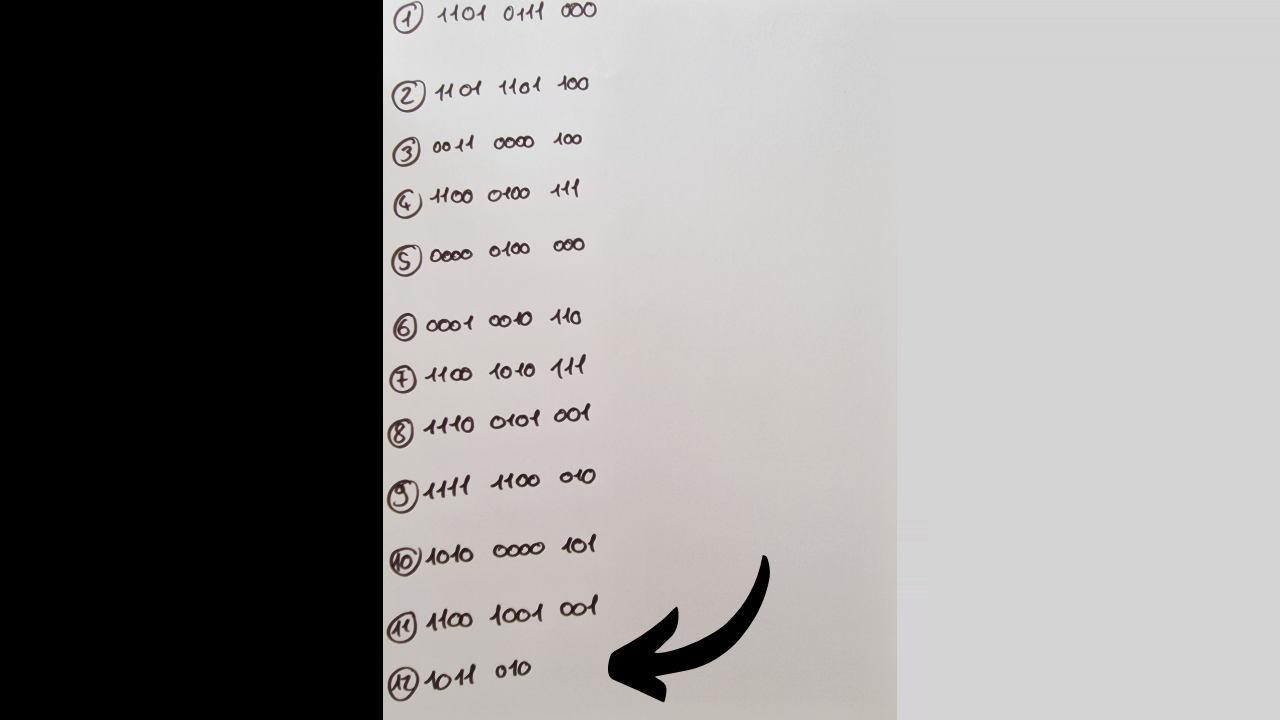 1 1101 0111 000
2 1101 1101 100
3 0011 0000 100
4 1100 0100 111
5 0000 0100 000
6 0001 0010 110
7 1100 1010 111
8 1110 0101 001
9 1111 1100 010
10 1010 0000 101
11 1100 1001 001
12 1011 010